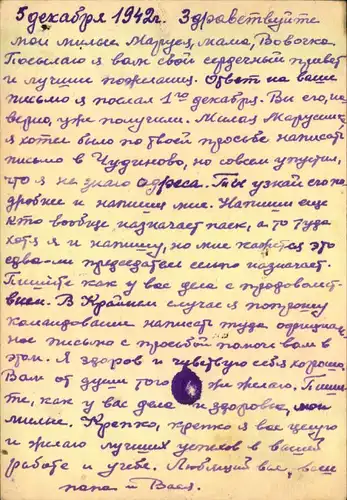 5 декабря 1942г. Здравствуйте
мои милые Маруся, мама, Вовочка.
Посылаю я вам свой сердечный привет
и лучшие пожелания. Ответ на ваше
письмо я послал 1го декабря. Вы его, на-
верно, уже получили. Милая Марусик
я хотел было по твоей просьбе написать
письмо в Чудиново, но совсем упустил,
что я не знаю адреса. Ты узнай его по-
дробнее и напиши мне. Напиши еще
кто вообще назначает паек, а то туда
хотя я и напишу, но мне кажется это
едва-ли председатель сельпо назначает.
Пишите как у вас дела с продовольст-
вием. В крайнем случае я попрошу
командование написать туда официаль-
ное письмо с просьбой помочь вам в
этом. Я здоров и чувствую себя хорошо.
Вам от души того же желаю. Пиши-
те, как у вас дела и здоровье, мои
милые. Крепко, крепко я вас целую
и желаю лучших успехов в вашей
работе и учебе. Любящий вас, ваш
папа и Вася.